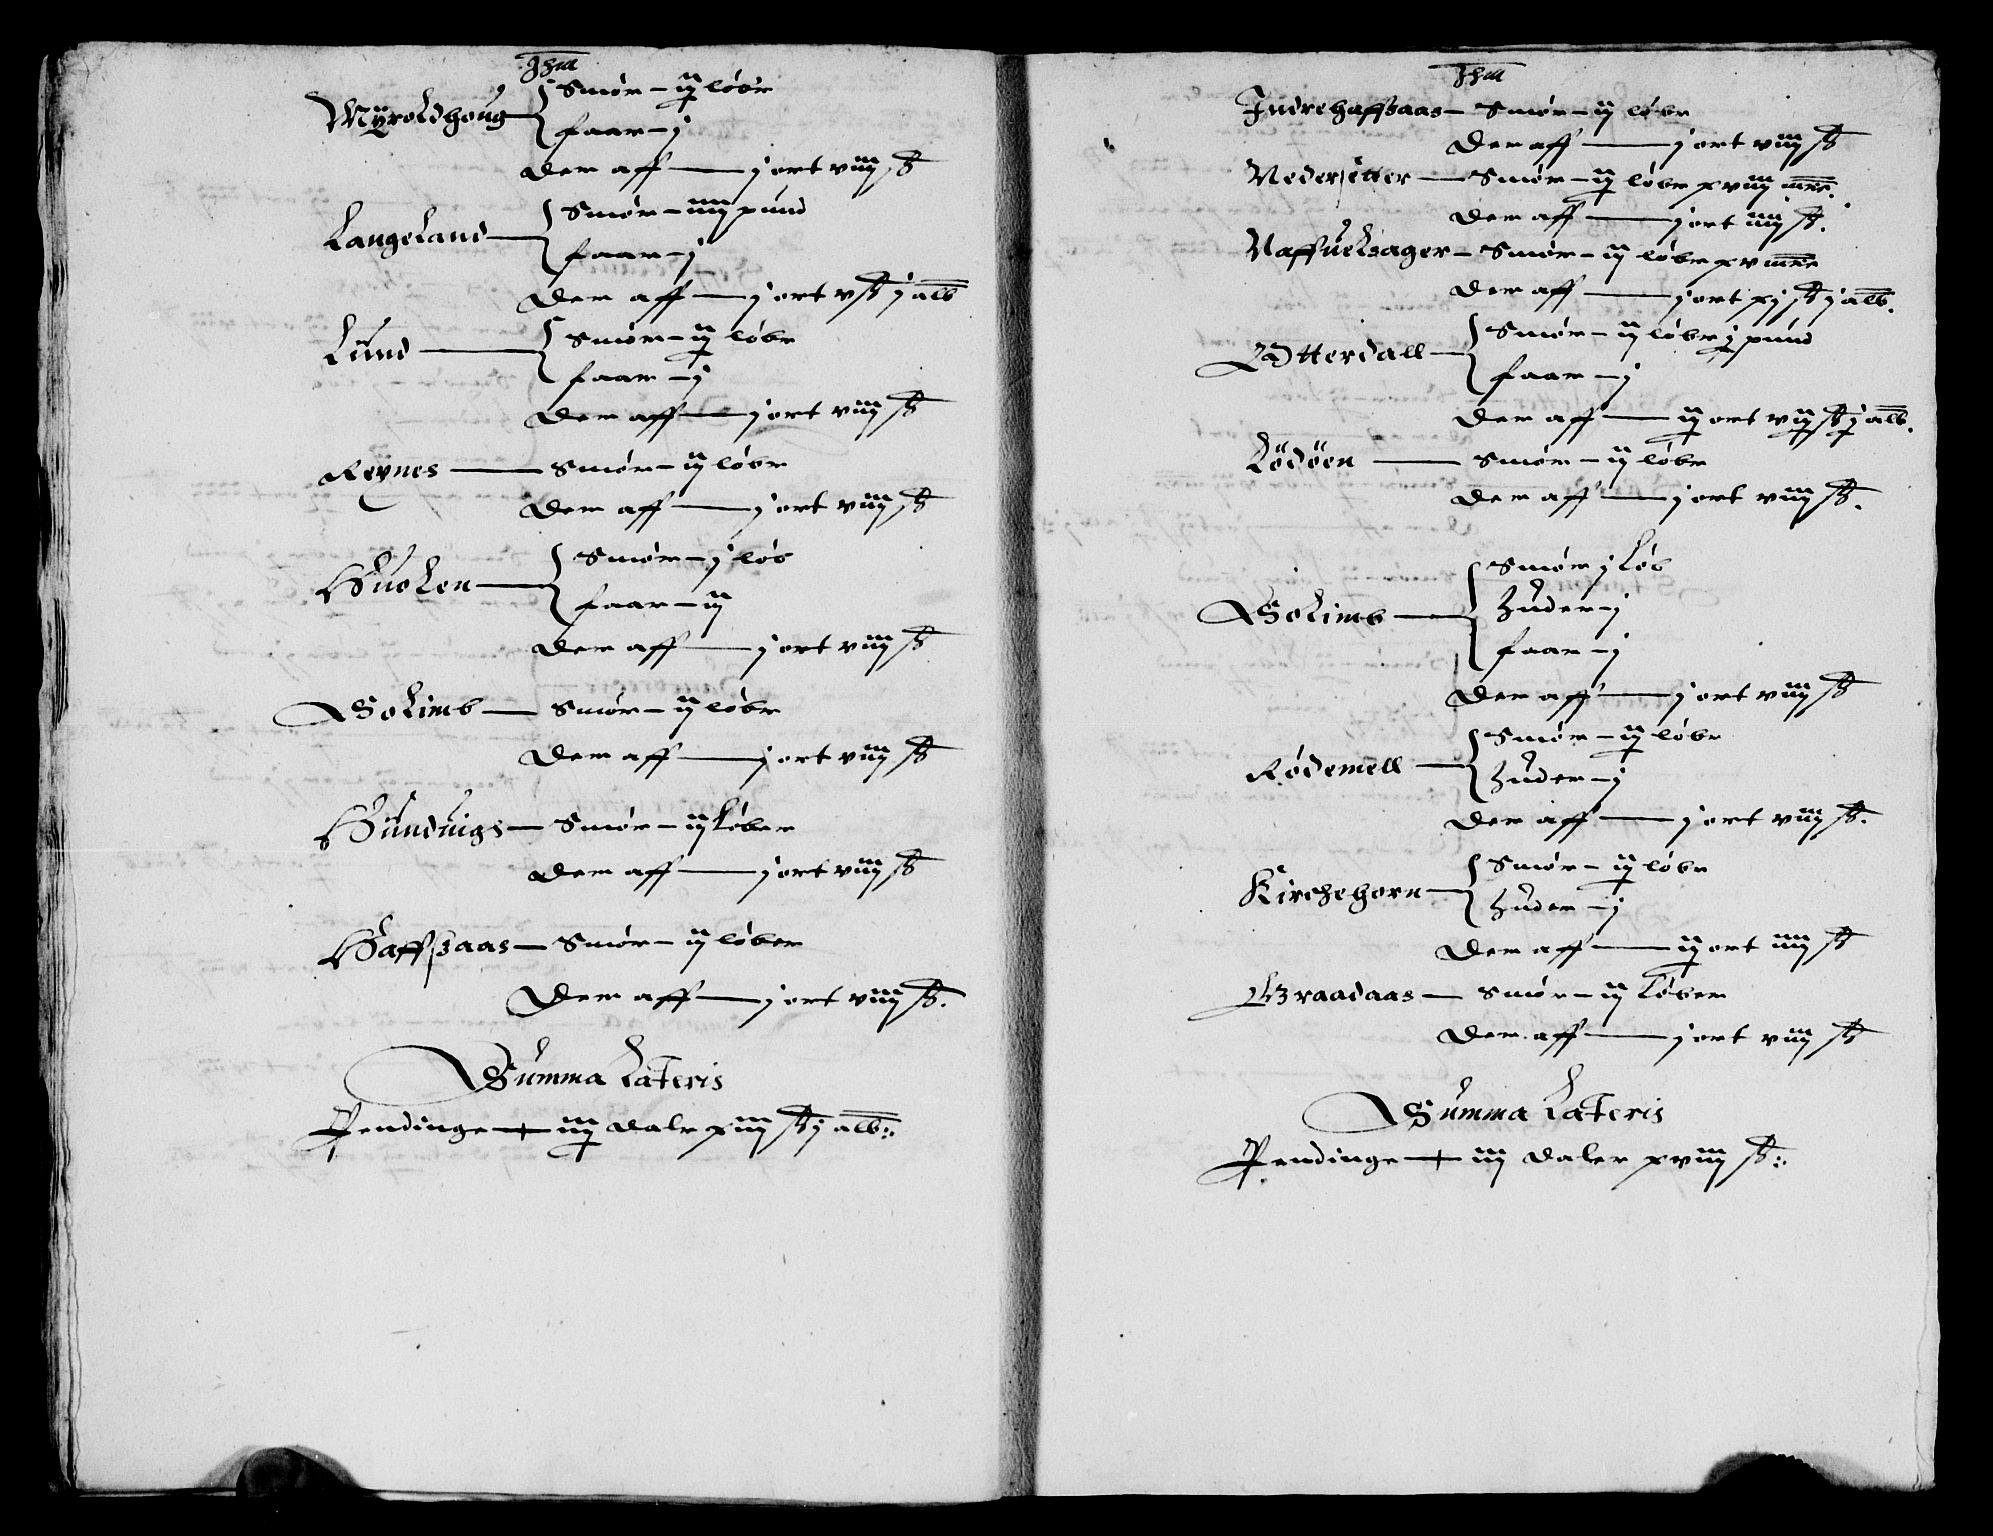 Jhm
Myroldhoug { Smør - ij løbe
faar - j
Der aff — j ort viij ß
Langeland { Smør - iiij pund
faar - j
Der aff — j ort v ß j alb
Lund { Smør - ij løbe
faar - j
Der aff — j ort viij ß
Reynes — Smør - ij løbe
Der aff — j ort viij ß
Huolen { Smør - j løb
faar - ij
Der aff — j ort viij ß
Solimb — Smør - ij løbe
Der aff — j ort viij ß
Hunduigs — Smør - ij Løber
Der aff — j ort viij ß
Haffsaas — Smør - ij løber
Der aff — j ort viij ß.
Summa Lateris
Pendinge — iij dale xiij ß j alb::
Jhm
Indrehaffsaas — Smør - ij løbe
Der aff — j ort viij ß
Nedersetter — Smør - ij løbe xviij mrc.
Der aff — j ort iiij ß.
Naffuelsager — Smør - ij løbe xv mrc
Der aff — j ort xj ß j alb.
Otterdall { Smør - ij løbe j pund
faar - j
Der aff — ij ort vij ß j alb.
Lödöen — Smør - ij løbe
Der aff — j ort viij ß.
Solimb { Smør j Løb
Huder - j
faar - j
Der aff — j ort viij ß
Rødemell { Smør - ij løbe
Huder - j
Der aff — j ort viij ß.
Kirchehorn { Smør - ij løbe
Huder - j
Der aff — ij ort iiij ß
Graadaas — Smør - ij Løber
Der aff — j ort viij ß
Summa Lateris
Pendinge — iij daler xviij ß::